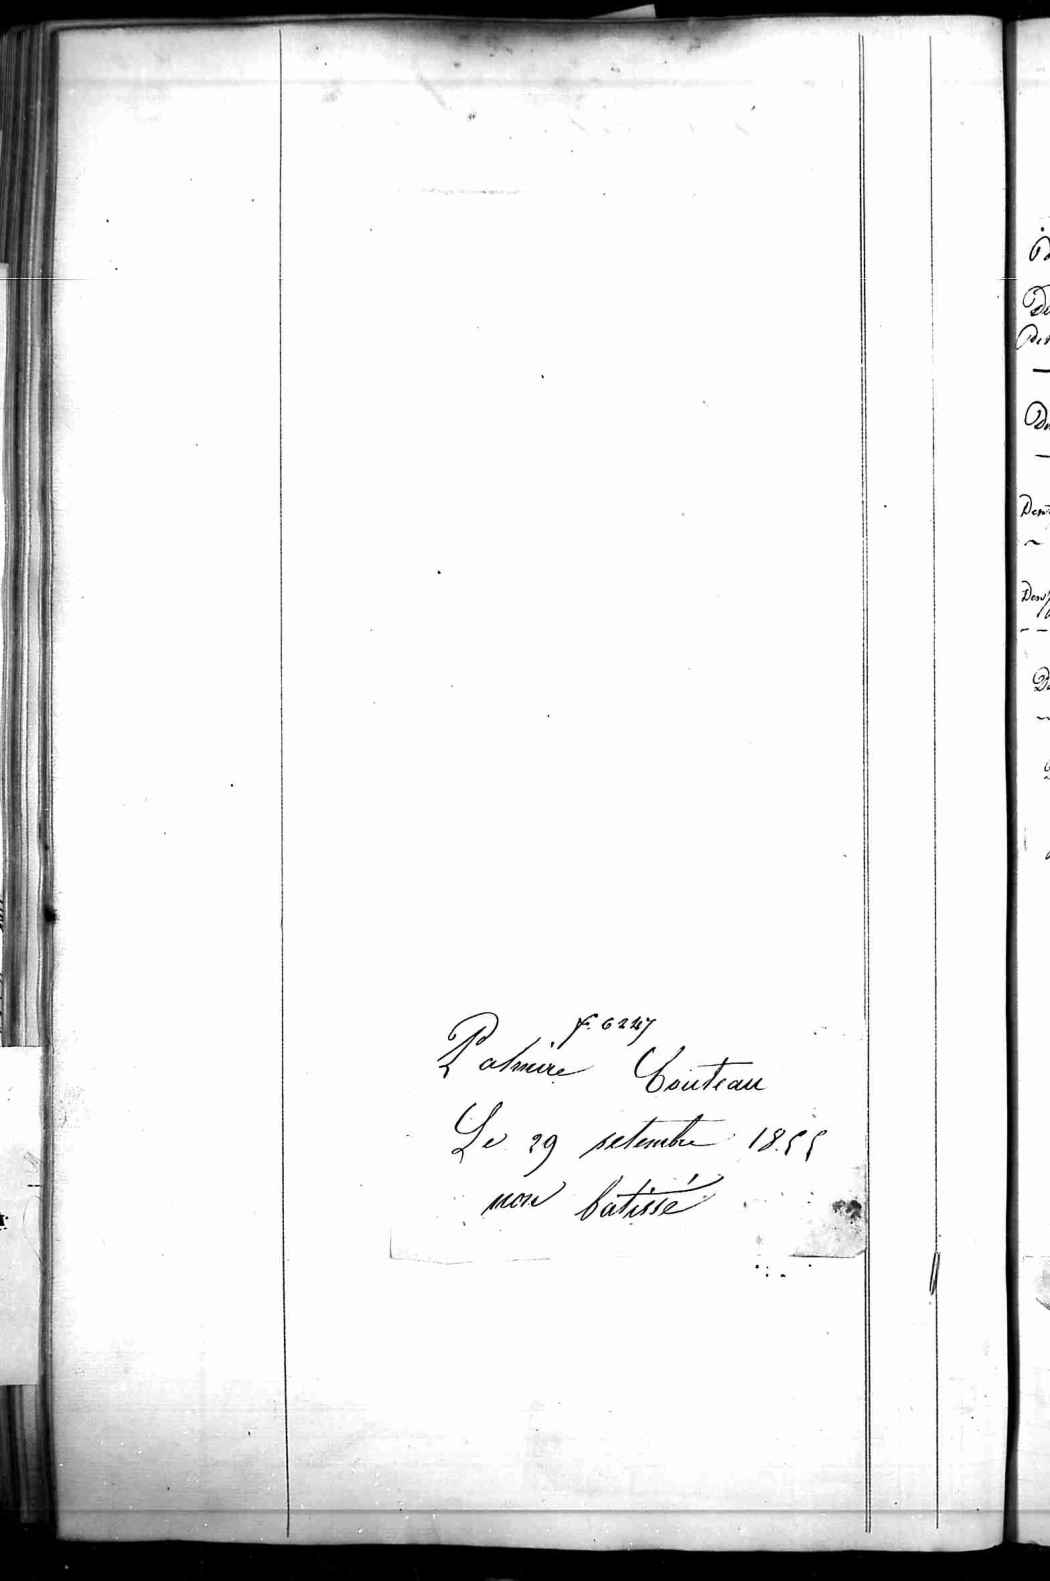 f. 6247
Palmire Couteau
Le 29 setembre 1855
non batissé